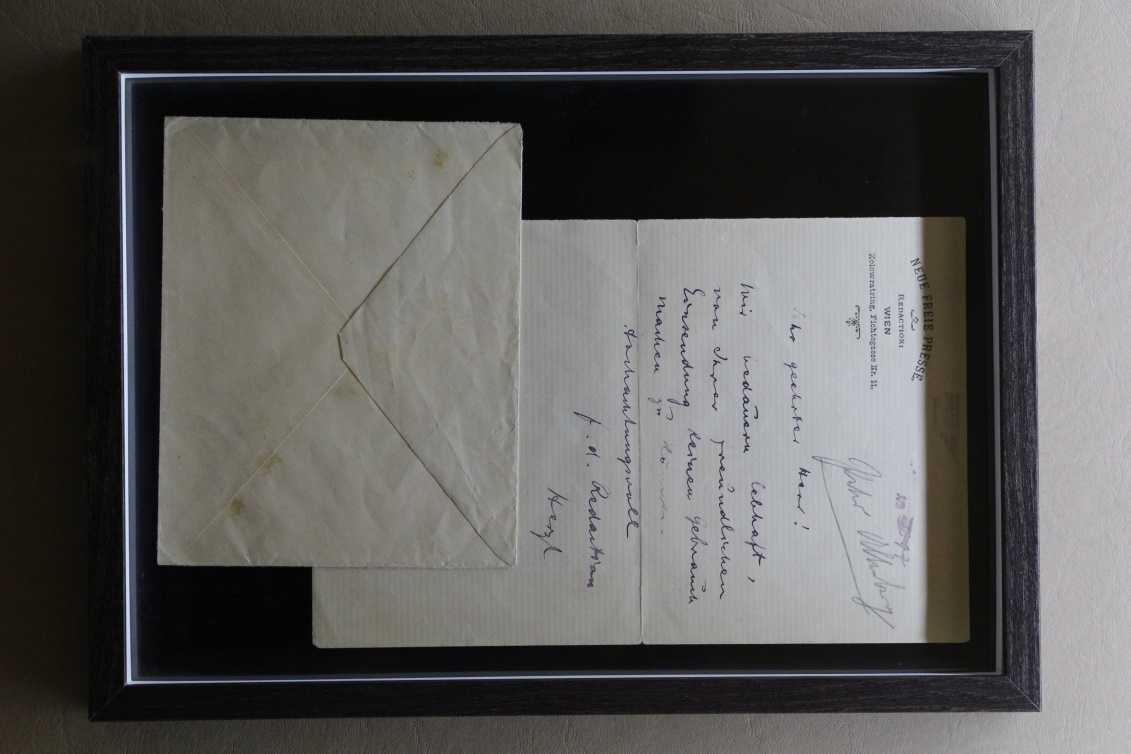 NEUE FREIE PRESSE
REDACTION:
WIEN
Kolowratring, Fichtegasse Nr. 11.
Sehr geehrter Herr!
Wir bedauern lebhaft,
von Ihrer freundlichen
Einsendung keinen Gebrauch
machen zu können.
Hochachtungsvoll
f. d. Redaction
Herzl